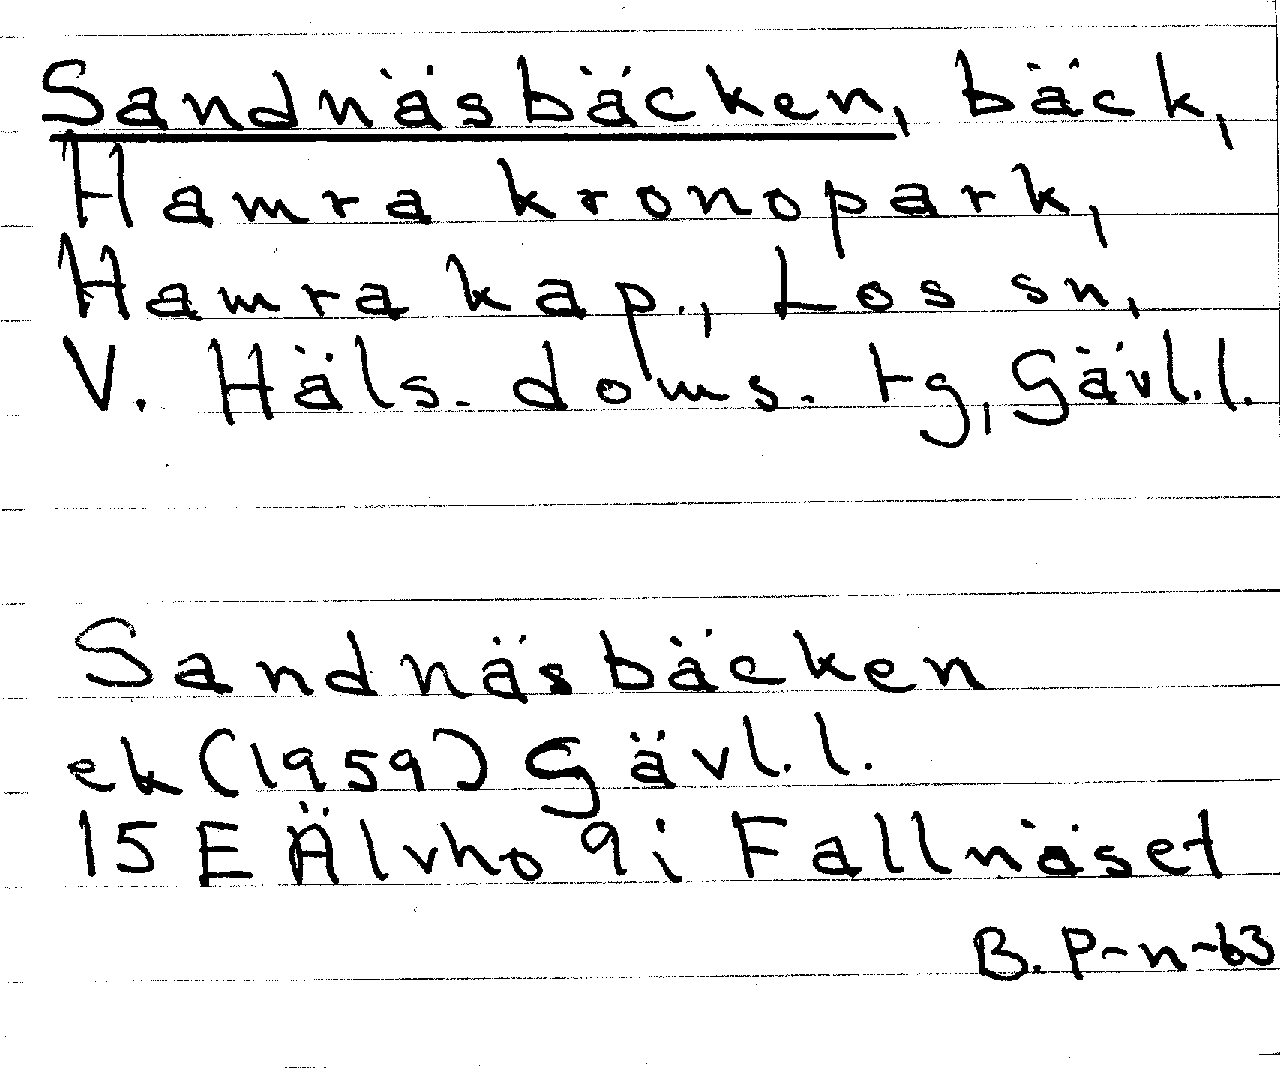 Sandnäsbäcken, bäck,
Hamra kronopark,
Hamra kap., Los sn,
V. Häls. doms. tg, Gävl. l.
Sandnäsbäcken
ek (1959) Gävl. l.
15 E Älvho 9i Fallnäset
B. P-n-63